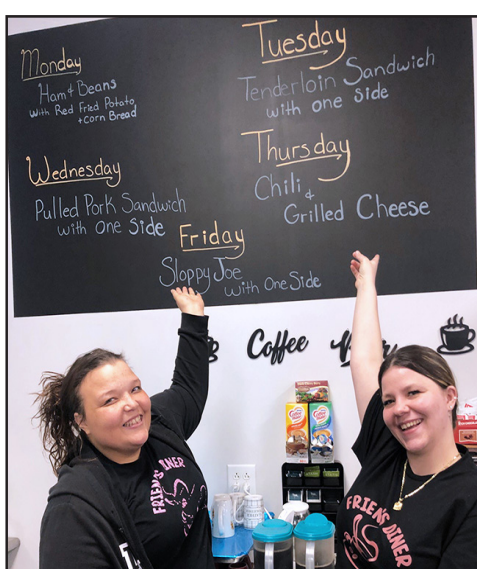 Monday
Ham & Beans
with Red Fried Potato
+ Corn Bread
Tuesday
Tenderloin Sandwich
with one side
Wednesday
Pulled Pork Sandwich
with One Side
Thursday
Chili &
Grilled Cheese
Friday
Sloppy Joe
with One Side
Coffee
FRIEN'S DINER
FRIEN'S DINER